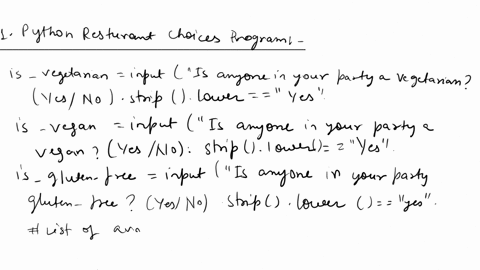 1. Python Resturant Choices Program:-
is_vegetarian = input ("Is anyone in your party a vegetarian?
(Yes/No) . strip () . lower == "Yes".
is_vegan = input ("Is anyone in your party a
vegan? (Yes/No). strip(). lower()== "Yes".
is_gluten-free = input ("Is anyone in your party
gluten-free? (Yes/No) strip() . lower () == "yes".
# List of ava